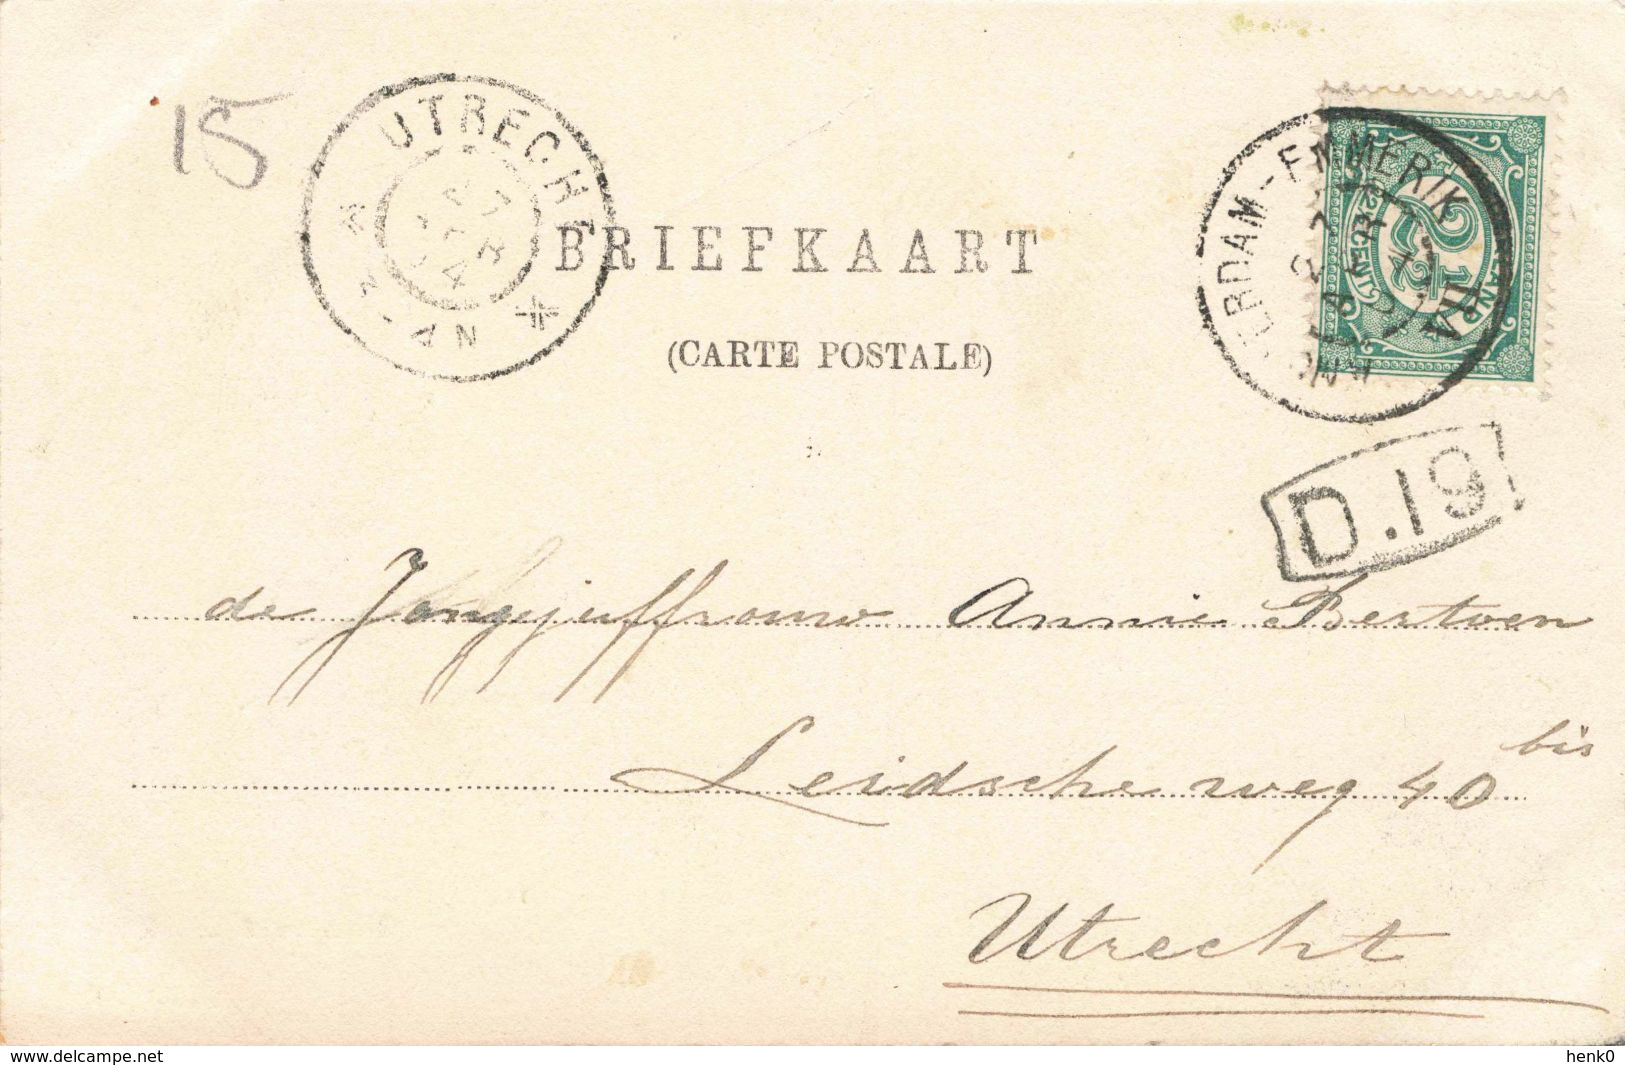 15
UTRECHT
BRIEFKAART
(CARTE POSTALE)
ERDAM-EMMERIK
VII
2½
D.19
de Jongejuffrouw Annie Bertoen
Leidsche weg 40 bis
Utrecht
www.delcampe.net
henk0